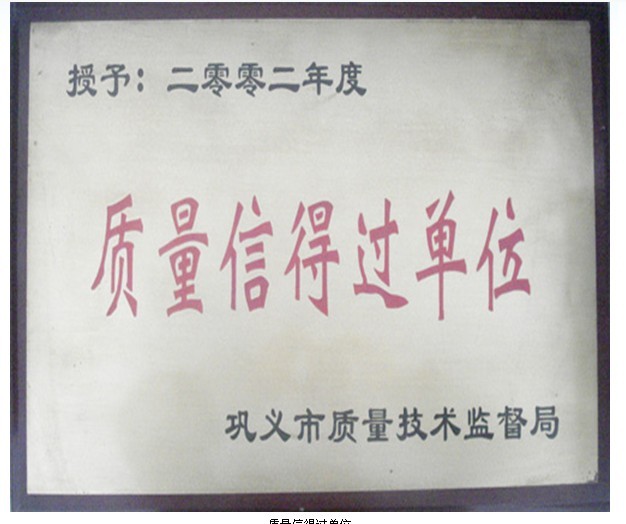 授予：二零零二年度
质量信得过单位
巩义市质量技术监督局
质量信得过单位